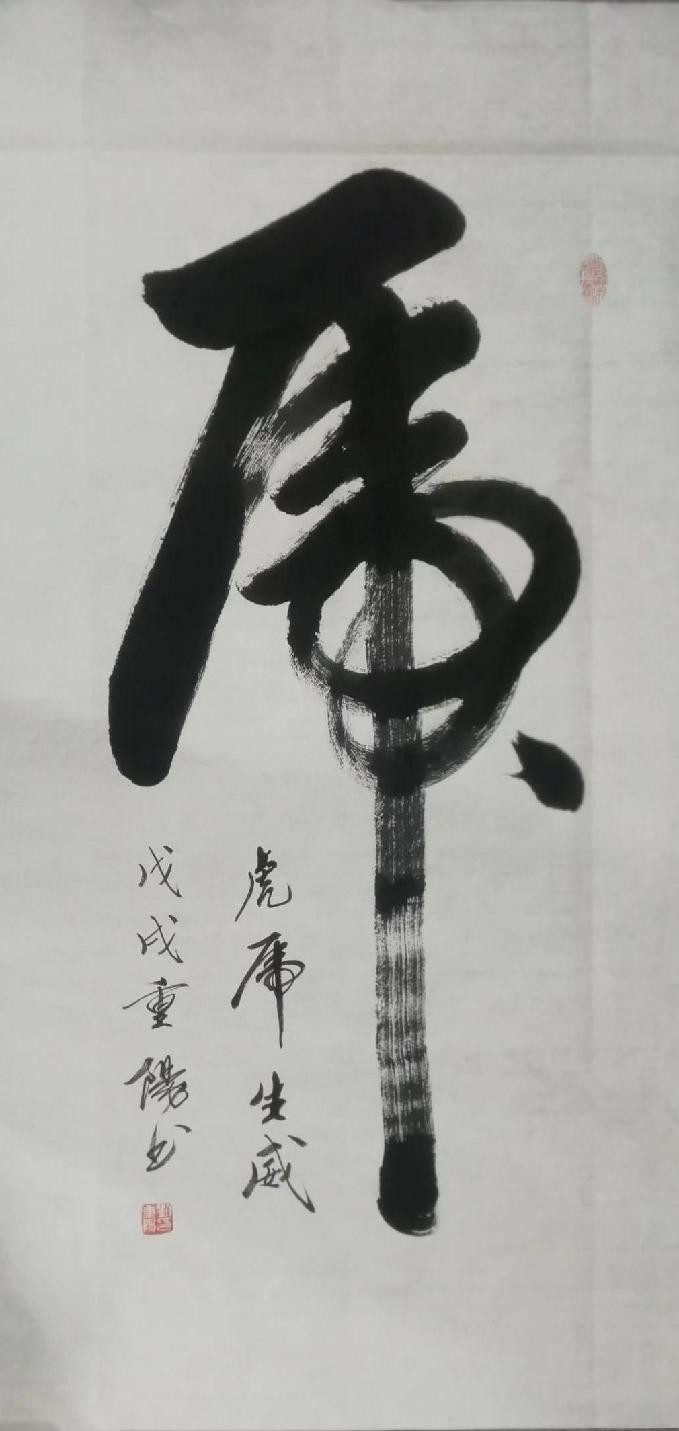 虎
虎虎生威
戊戌重陽书